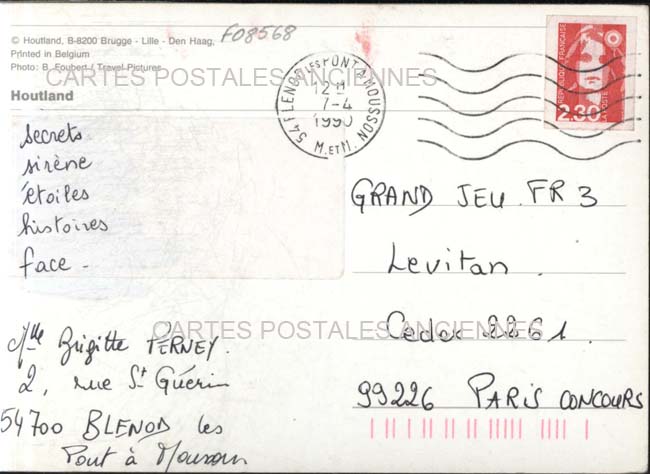 © Houtland, B-8200 Brugge - Lille - Den Haag,
Printed in Belgium
Photo: B. Foubert / Travel-Pictures
Houtland
F08568
CARTES POSTALES ANCIENNES
54 BLENOD LES PONT A MOUSSON
12 H
7-4
1990
M. ET M.
REPUBLIQUE FRANÇAISE
2.30
LA POSTE
secrets
sirène
étoiles
histoires
face -
GRAND JEU FR3
Levitan.
Cedex 2261.
99226 PARIS CONCOURS
CARTES POSTALES ANCIENNES
Mlle Brigitte PERNEY.
2, rue St Guérin
54700 BLENOD les
Pont à Mousson